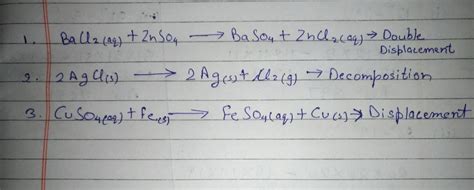 1. BaCl2(aq) + ZnSO4 → BaSO4 + ZnCl2(aq) → Double
Displacement
2. 2AgCl(s) → 2Ag(s) + Cl2(g) → Decomposition
3. CuSO4(aq) + Fe(s) → FeSO4(aq) + Cu(s) → Displacement